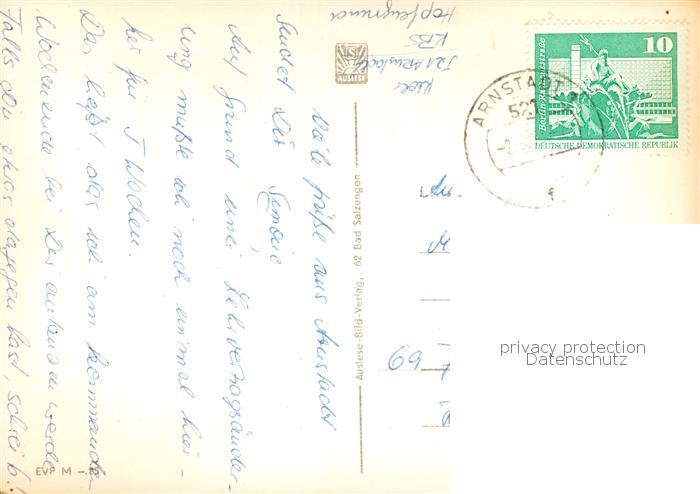 Viele Grüße aus Arnstadt
sendet Dir Simone
Auf Grund einer Lehrvertragsänder-
ung mußte ich noch einmal hier-
her für 7 Wochen.
Das heißt das ich am kommenden
Wochenende bei Dir antanzen werde
Falls Du etwas dagegen hast, schreib!
Hopfengrund
KBS
521 Arnstadt
AUSLESE
Auslese-Bild-Verlag, 62 Bad Salzungen
EVP M -.
ARNSTADT
521
10
Berlin-Rathausstraße
DEUTSCHE DEMOKRATISCHE REPUBLIK
69
privacy protection
Datenschutz